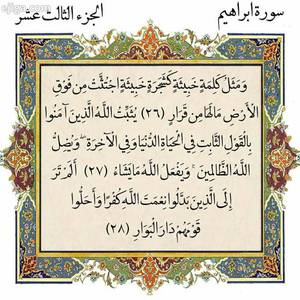 سورة ابراهيم
الجزء الثالث عشر
وَمَثَلُ كَلِمَةٍ خَبِيثَةٍ كَشَجَرَةٍ خَبِيثَةٍ اجْتُثَّتْ مِن فَوْقِ
الْأَرْضِ مَا لَهَا مِن قَرَارٍ (٢٦) يُثَبِّتُ اللَّهُ الَّذِينَ آمَنُوا
بِالْقَوْلِ الثَّابِتِ فِي الْحَيَاةِ الدُّنْيَا وَفِي الْآخِرَةِ وَيُضِلُّ
اللَّهُ الظَّالِمِينَ وَيَفْعَلُ اللَّهُ مَا يَشَاءُ (٢٧) أَلَمْ تَرَ
إِلَى الَّذِينَ بَدَّلُوا نِعْمَتَ اللَّهِ كُفْرًا وَأَحَلُّوا
قَوْمَهُمْ دَارَ الْبَوَارِ (٢٨)